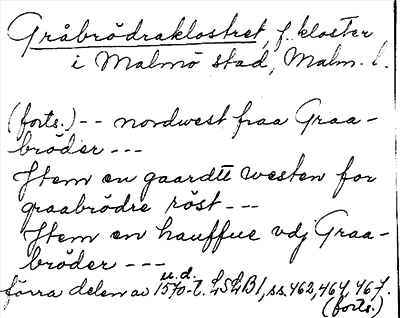 Gråbrödraklostret, f. kloster
i Malmö stad, Malm. l.
(forts.) -- nordwest fraa Graa-
brøder ---
Item en gaardtt westen for
graabrødre röst ---
Item en hauffue vdj Graa-
brøder ---
u.d.
förra delen av 1570-t. LSLB1, ss. 462, 464, 467.
(forts.)